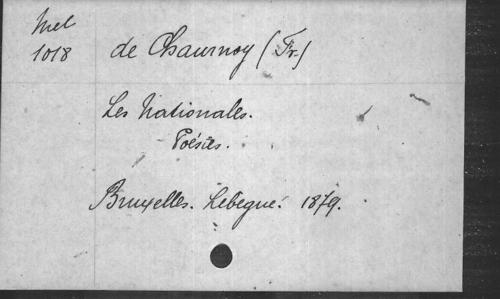 Mel
1018
de Chaurnoy (Fr.)
Les Nationales.
Poésies.
Bruxelles. Lebegue. 1879.